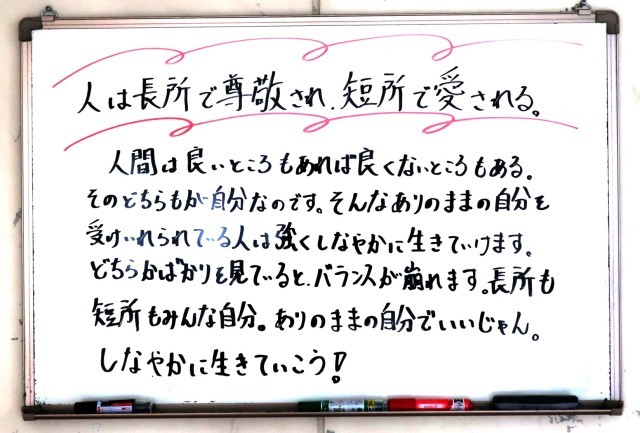 人は長所で尊敬され、短所で愛される。
人間は良いところもあれば良くないところもある。
そのどちらもが自分なのです。そんなありのままの自分を
受けいれられている人は強くしなやかに生きていけます。
どちらかばかりを見ていると、バランスが崩れます。長所も
短所もみんな自分。ありのままの自分でいいじゃん。
しなやかに生きていこう!